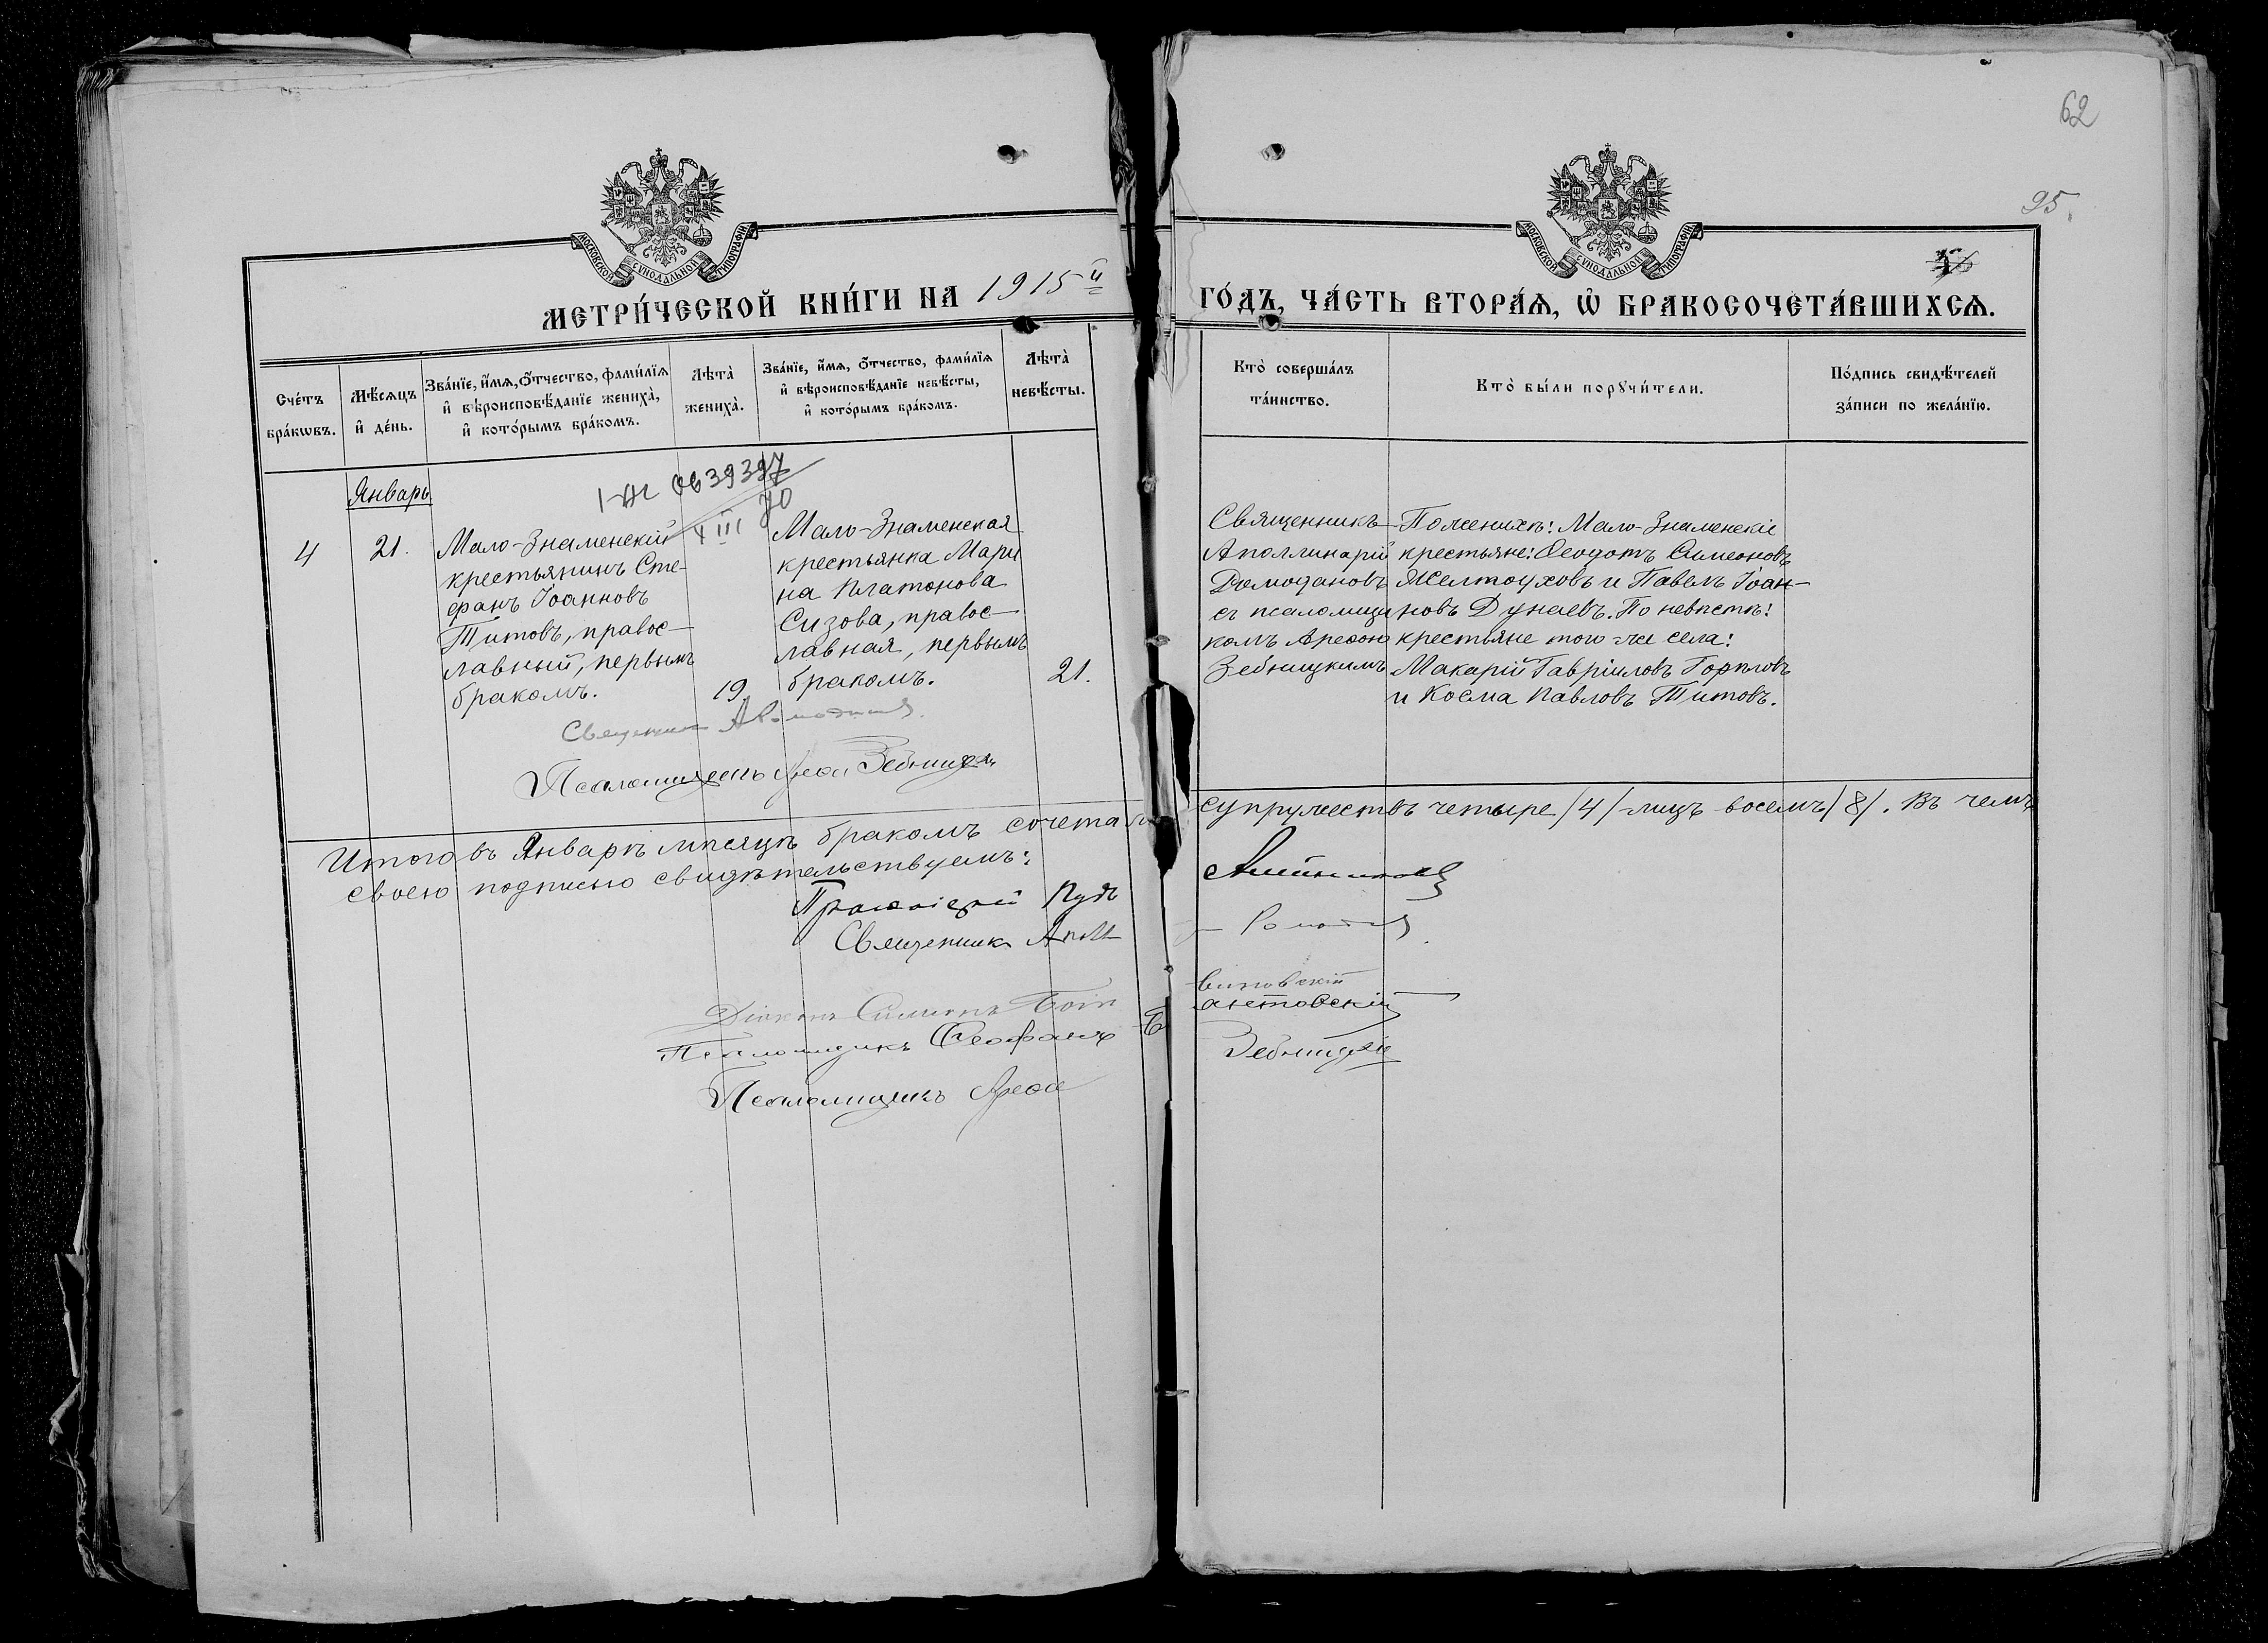 62
95.
МОСКОВСКОЙ СѴНОДАЛЬНОЙ ТИПОГРАФІИ
МОСКОВСКОЙ СѴНОДАЛЬНОЙ ТИПОГРАФІИ
МЕТРИ́ЧЕСКОЙ КНИ́ГИ НА 1915й
ГО́ДЪ, ЧА́СТЬ ВТОРА́Ѧ, Ѡ҆ БРАКОСОЧЕТА́ВШИХСѦ.
Сче́тъ бра́кѡвъ.
Мѣ́сѧцъ и҆ де́нь.
Зва́нїе, и҆́мѧ, ѻ҆́тчество, фами́лїѧ
и҆ вѣроисповѣ́данїе жениха̀,
и҆ кото́рымъ бра́комъ.
Лѣта̀ жениха̀.
Зва́нїе, и҆́мѧ, ѻ҆́тчество, фами́лїѧ
и҆ вѣроисповѣ́данїе невѣ́сты,
и҆ кото́рымъ бра́комъ.
Лѣта̀ невѣ́сты.
Кто̀ соверша́лъ
та́инство.
Кто̀ бы́ли порꙋчи́тели.
По́дпись свидѣ́телей
за́писи по жела́нїю.
Январь
0639397
XIII 70
4
21.
Мало-Знаменскій
крестьянинъ Сте-
фанъ Іоанновъ
Титовъ, правос-
лавный, первымъ
бракомъ.
19.
Мало-Знаменская
крестьянка Мари
на Платонова
Сизова, правос-
лавная, первымъ
бракомъ.
21.
Священникъ
Аполлинарій
Ромодановъ
съ псаломщи
комъ Арефою
Зебницкимъ
По женихѣ: Мало-Знаменскіе
крестьяне: Ѳеодотъ Симеоновъ
Желтоуховъ и Павелъ Іоан-
новъ Дунаевъ. По невѣстѣ:
крестьяне того-же села:
Макарій Гавріиловъ Горѣловъ
и Косма Павловъ Титовъ.
Священникъ А Ромодановъ
Псаломщикъ Арефа Зебницкій
Итого въ Январѣ мѣсяцѣ бракомъ сочетал. супружествъ четыре /4/-лицъ восемь /8/. Въ чемъ
своею подписью свидѣтельствуемъ:
Протоіерей
Священникъ Апол Ромодановъ
Діаконъ Симеонъ
Псаломщикъ Ѳеофанъ
Псаломщикъ Арефа Зебницкій